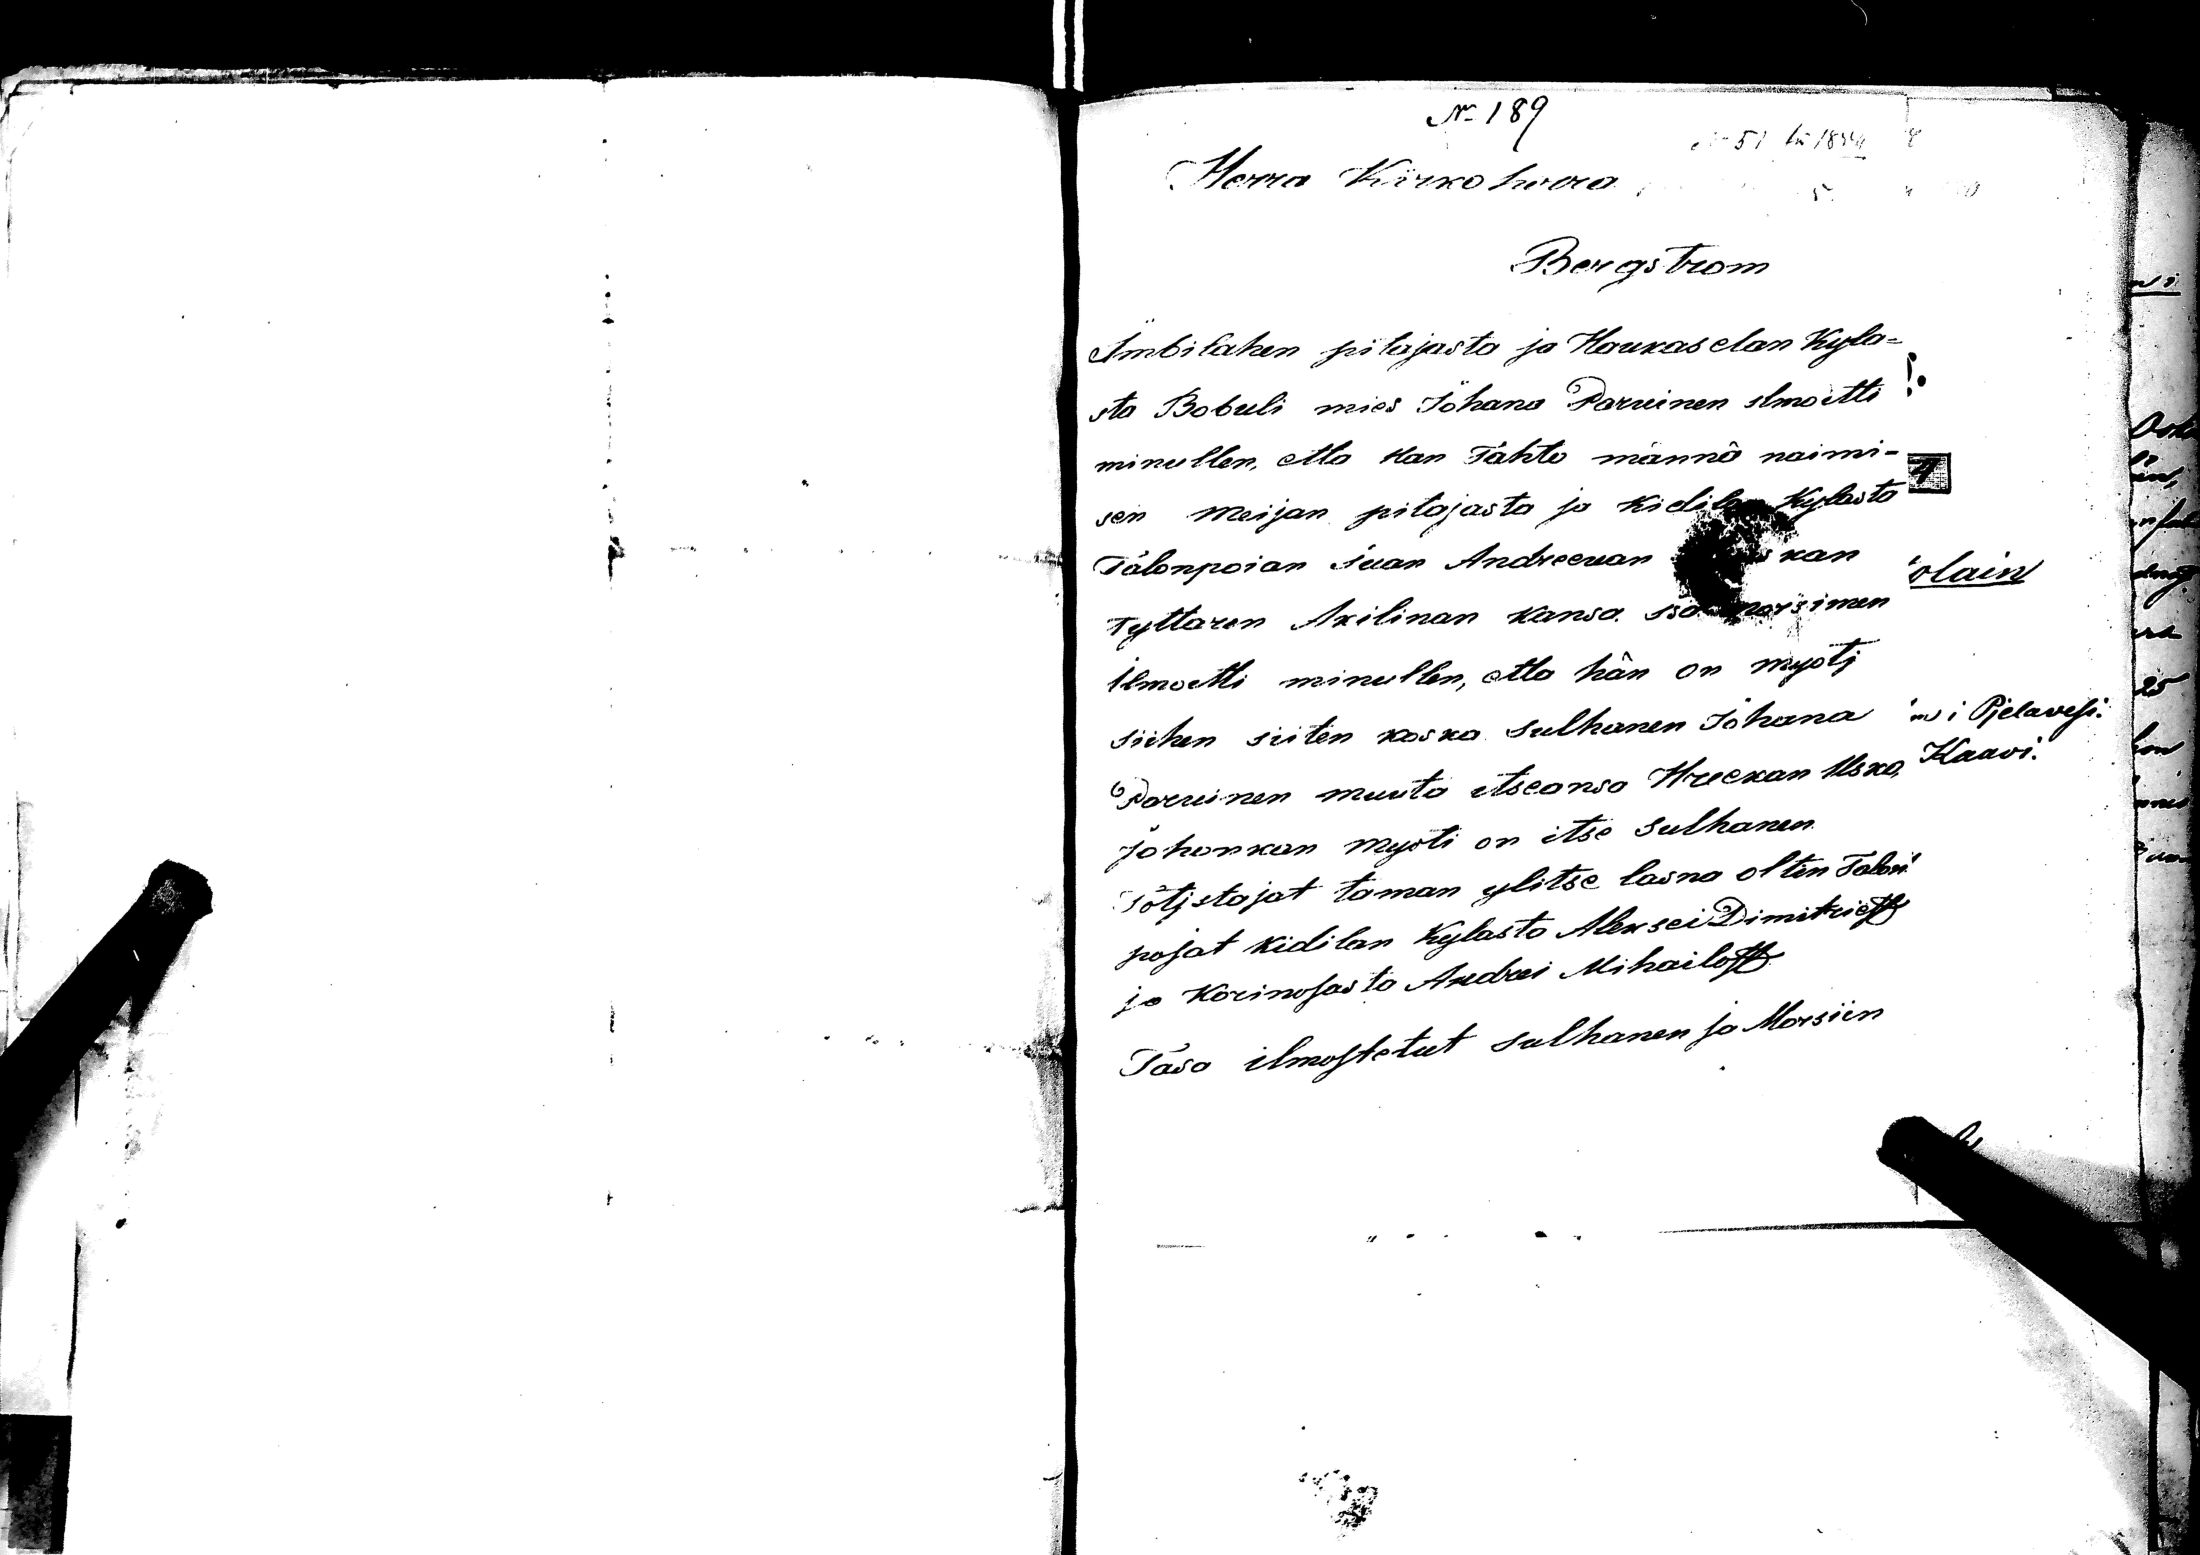 № 189
Herra Kirko herra
Bergstrom
Imbilahen pitajasta ja Haukaselan Kyla=
sta Bobuli mies Johana Paruinen ilmoitti
minullen, etta han Tahto männä naimi-
sen meijan pitajasta ja Kidilan Kylasta
Talonpoian Iuan Andreeuan kan
Tyttaren Akilinan kansa
ilmoitti minullen, etta hän on myotj
siihen siiten koska sulhanen Johana
Paruinen muuta itseansa Hreekan Usko,
johonkan myoti on itse sulhanen
Totjstajat taman ylitse lasna olten Talon
pojat Kidilan Kylasta Aleksei Dimitrieff
ja Korinojasta Andrei Mihailoff
Tasa ilmojtetut sulhanen ja Morsiin
olain
i Pjelavesi.
Kaavi.
25